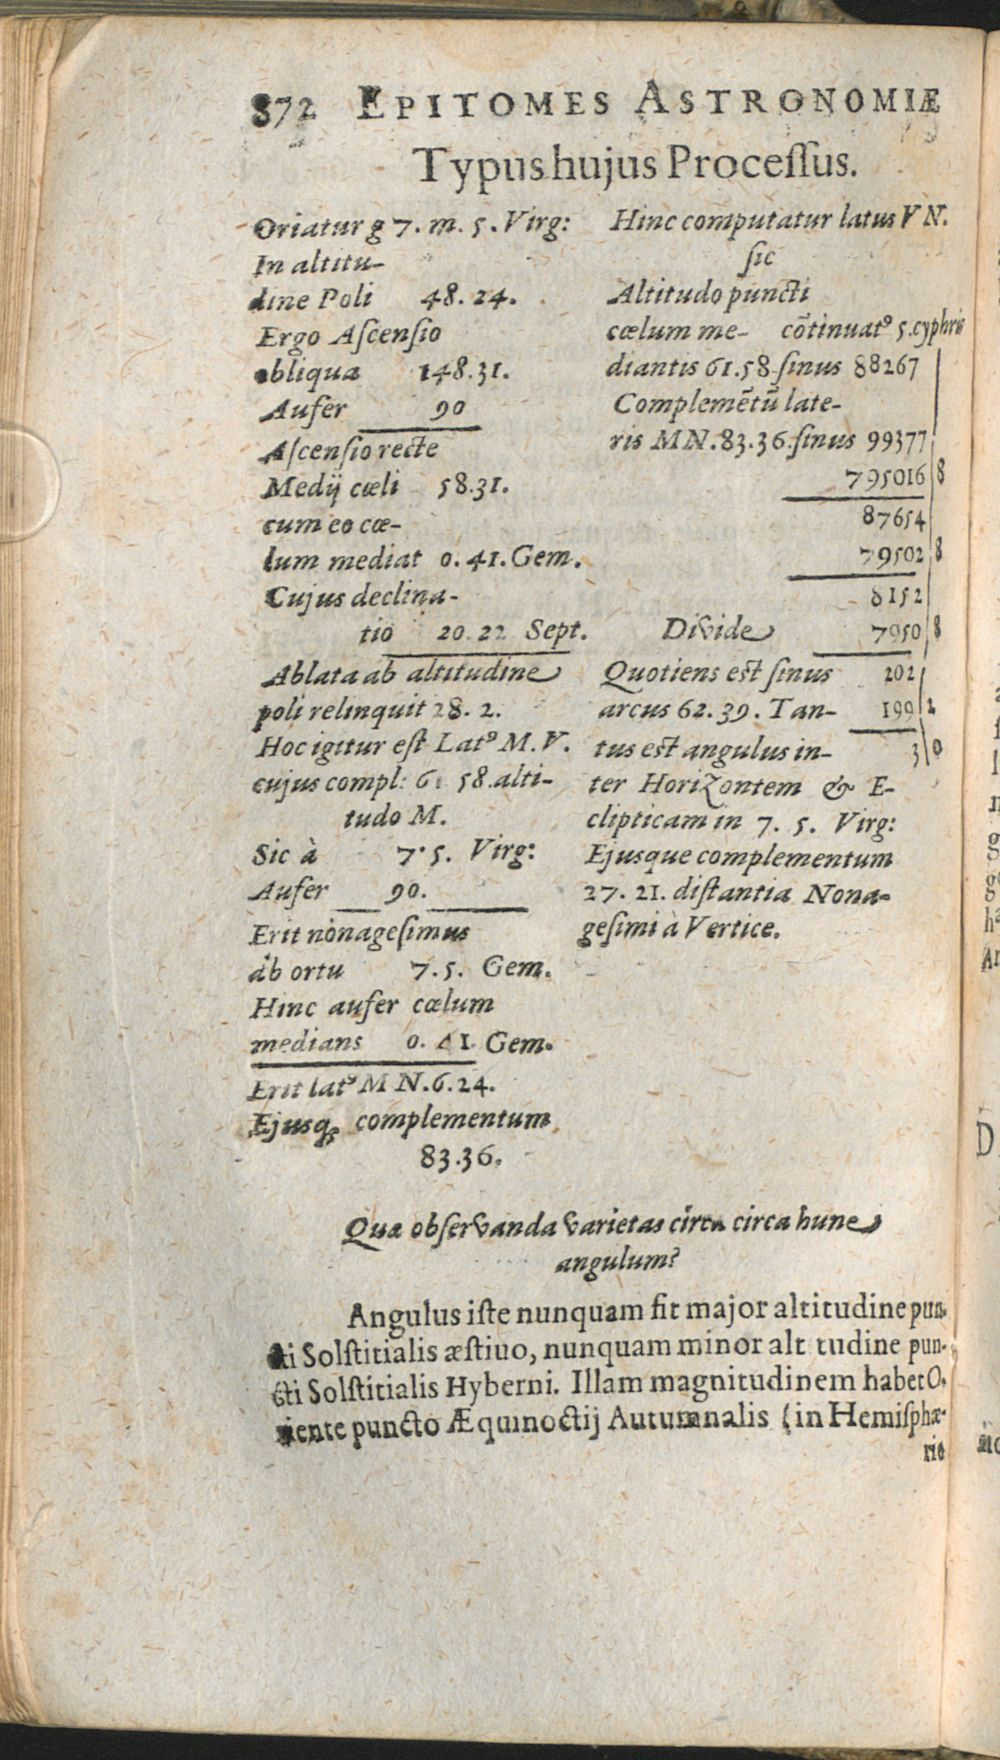 372 EPITOMES ASTRONOMIÆ
Typus hujus Processus.
Oriatur g 7. m. 5. Virg:
In altitu-
dine Poli 48. 24.
Ergo Ascensio
obliqua 148.31.
Aufer 90
Ascensio recte
Medij cœli 58.31.
cum eo cœ-
lum mediat 0. 41. Gem.
Cujus declina-
tiō 20. 22 Sept.
Ablata ab altitudine
poli relinquit 28. 2.
Hoc igitur est Lat⁹ M. V.
cujus compl: 61 58. alti-
tudo M.
Sic à 7. 5. Virg:
Aufer 90.
Erit nonagesimus
ab ortu 7. 5. Gem.
Hinc aufer cœlum
medians 0. 41. Gem.
Erit lat⁹ M N. 6. 24.
Ejusq; complementum
83.36.
Hinc computatur latus V N.
sic
Altitudo puncti
cœlum me- cōtinuat⁹ 5. cyphris
diantis 61.58. sinus 88267
Complemētū late-
ris MN. 83. 36. sinus 99377
795016 8
87654
79502 8
8152
Divide 7950 8
Quotiens est sinus 202
arcus 62. 39. Tan- 199 2
tus est angulus in- 3 0
ter Horizontem & E-
clipticam in 7. 5. Virg:
Ejusque complementum
27. 21. distantia Nona-
gesimi à Vertice.
Quæ observanda varietas circa circa hunc
angulum?
Angulus iste nunquam fit major altitudine pun-
cti Solstitialis æstivo, nunquam minor alt tudine pun-
cti Solstitialis Hyberni. Illam magnitudinem habet O-
riente puncto Æquinoctij Autumnalis (in Hemisphæ-
rio